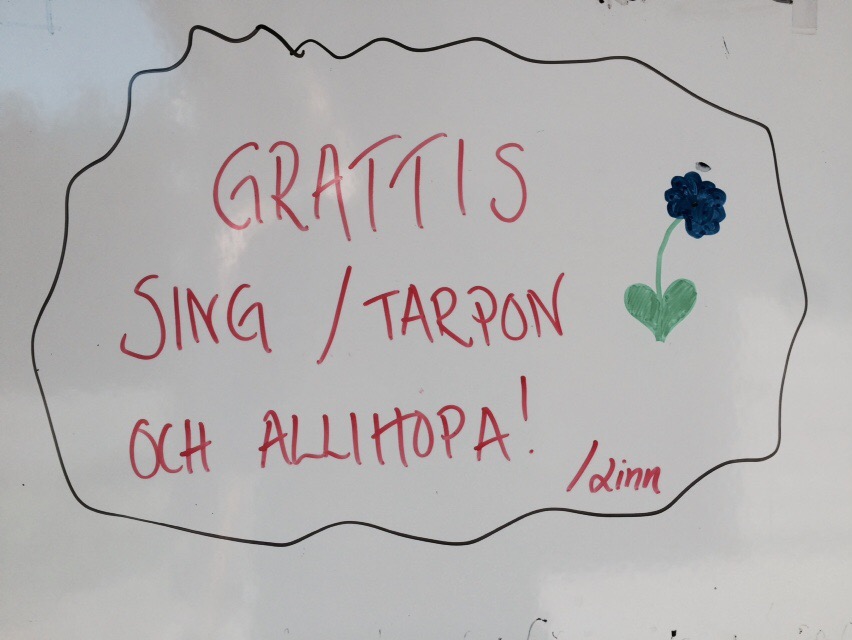 GRATTIS
SING / TARPON
OCH ALLIHOPA!
/Linn